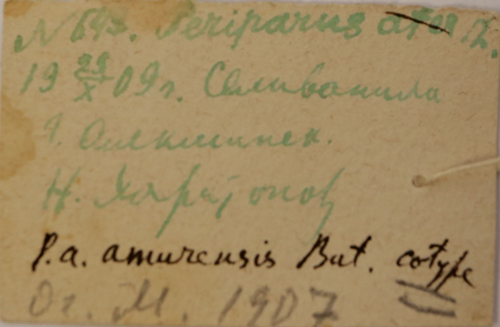 № 543. Periparus ater L.
19 29/X 09 г. Селиваниха
Н. Харитонов
P.a. amurensis But. cotype
Ог. М. 1907